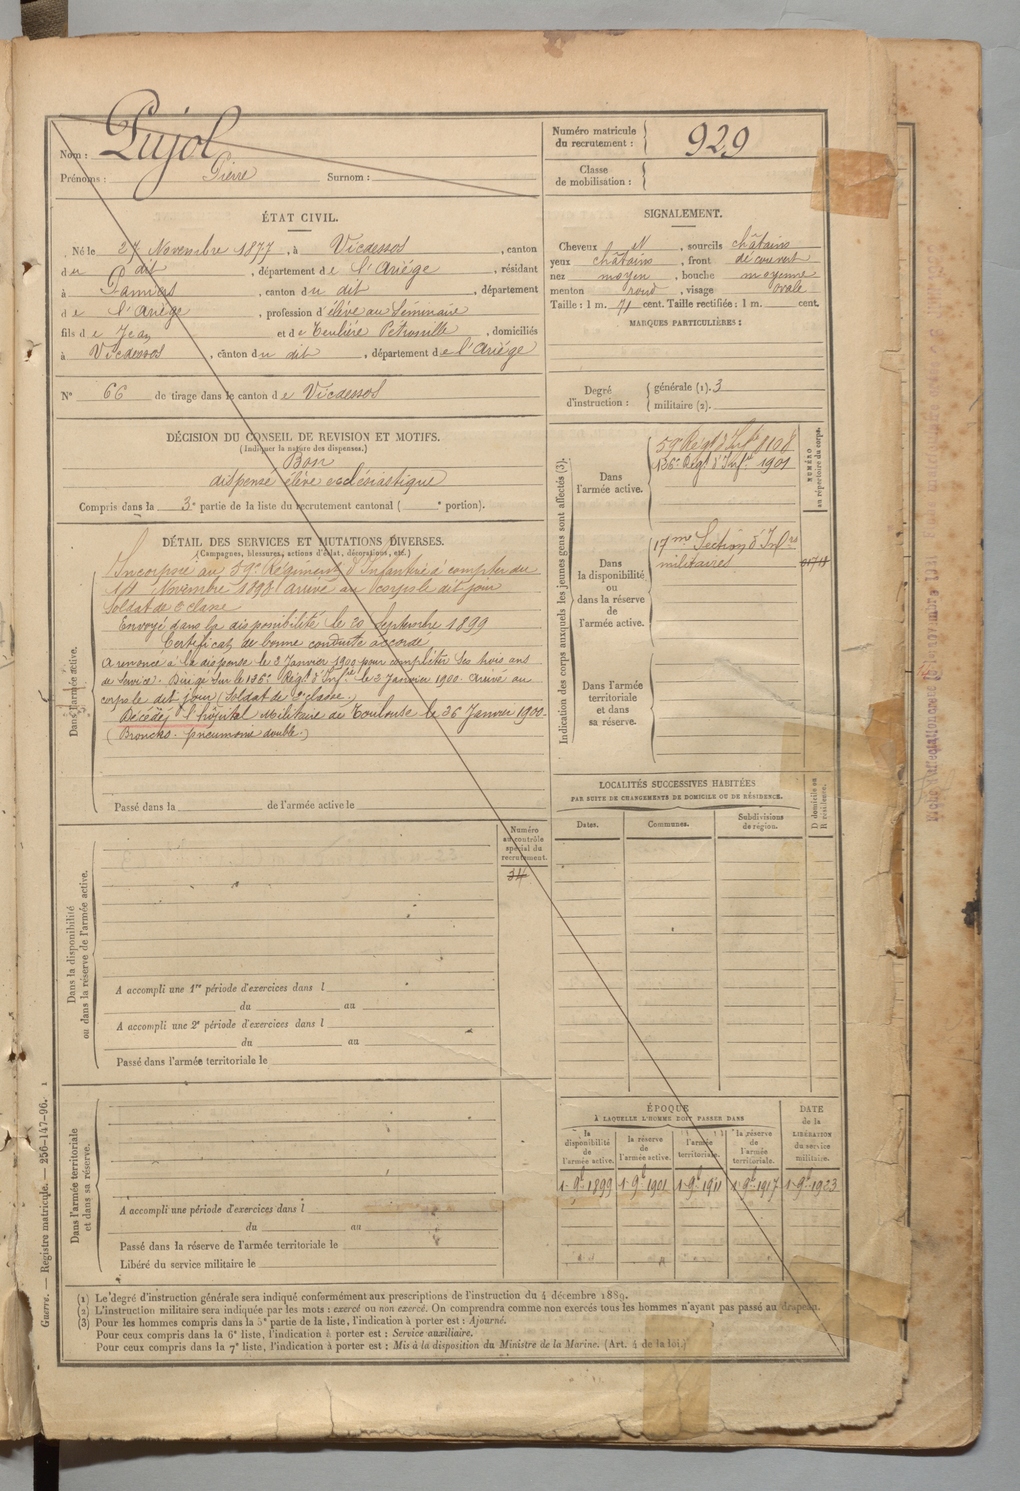 Nom : Pujol
Prénoms : Pierre Surnom :
Numéro matricule du recrutement : 929
Classe de mobilisation :
ÉTAT CIVIL.
Né le 27 Novembre 1877, à Vicdessos, canton
du dit, département de l'Ariége, résidant
à Pamiers, canton du dit, département
de l'Ariège, profession d'élève au Séminaire
fils de Jean et de Petronille, domiciliés
à Vicdessos, canton du dit, département de l'Ariége
N° 66 de tirage dans le canton de Vicdessos
SIGNALEMENT.
Cheveux, sourcils châtains
yeux châtains, front découvert
nez moyen, bouche moyenne
menton rond, visage ovale
Taille : 1 m. 71 cent. Taille rectifiée : 1 m. cent.
MARQUES PARTICULIÈRES :
Degré d'instruction : générale (1). 3
militaire (2).
DÉCISION DU CONSEIL DE REVISION ET MOTIFS.
(Indiquer la nature des dispenses.)
Bon
dispensé élève ecclésiastique
Compris dans la 3e partie de la liste du recrutement cantonal ( e portion).
DÉTAIL DES SERVICES ET MUTATIONS DIVERSES.
(Campagnes, blessures, actions d'éclat, décorations, etc.)
Dans l'armée active.
Incorporé au 59e Régiment d'Infanterie à compter du
Novembre 1898 arrivé au corps le dit jour
Soldat de 2e classe
Envoyé dans la disponibilité le 20 septembre 1899
Certificat de bonne conduite accordé
A renoncé à la dispense le 2 Janvier 1900 pour compléter ses trois ans
de service. Dirigé sur le 136e Régt d'Infie le 2 Janvier 1900. Arrivé au
corps le dit jour (Soldat de 2e classe.)
Décédé à l'hôpital Militaire de Toulouse le 26 Janvier 1900.
(Broncho-pneumonie double.)
Passé dans la de l'armée active le
Indication des corps auxquels les jeunes gens sont affectés (3).
NUMÉRO au répertoire du corps.
Dans l'armée active.
59e Régt d'Infie
136e Régt d'Infie 1901
Dans la disponibilité ou dans la réserve de l'armée active.
17me Section d'Infrs
militaires
Dans l'armée territoriale et dans sa réserve.
LOCALITÉS SUCCESSIVES HABITÉES
PAR SUITE DE CHANGEMENTS DE DOMICILE OU DE RÉSIDENCE.
Dates. Communes. Subdivisions de région. D domicile ou R résidence.
Numéro au contrôle spécial du recrutement.
34
Dans la disponibilité ou dans la réserve de l'armée active.
A accompli une 1re période d'exercices dans l
du au
A accompli une 2e période d'exercices dans l
du au
Passé dans l'armée territoriale le
Dans l'armée territoriale et dans sa réserve.
A accompli une période d'exercices dans l
du au
Passé dans la réserve de l'armée territoriale le
Libéré du service militaire le
ÉPOQUE
À LAQUELLE L'HOMME DOIT PASSER DANS
la disponibilité de l'armée active. la réserve de l'armée active. l'armée territoriale. la réserve de l'armée territoriale.
DATE de la LIBÉRATION du service militaire.
1 9bre 1899 1 9bre 1901 1 9bre 1911 1 9bre 1917 1 9bre 1923
(1) Le degré d'instruction générale sera indiqué conformément aux prescriptions de l'instruction du 4 décembre 1889.
(2) L'instruction militaire sera indiquée par les mots : exercé ou non exercé. On comprendra comme non exercés tous les hommes n'ayant pas passé au drapeau.
(3) Pour les hommes compris dans la 5e partie de la liste, l'indication à porter est : Ajourné.
Pour ceux compris dans la 6e liste, l'indication à porter est : Service auxiliaire.
Pour ceux compris dans la 7e liste, l'indication à porter est : Mis à la disposition du Ministre de la Marine. (Art. 4 de la loi.)
Guerre. — Registre matricule. — 256-147-96.